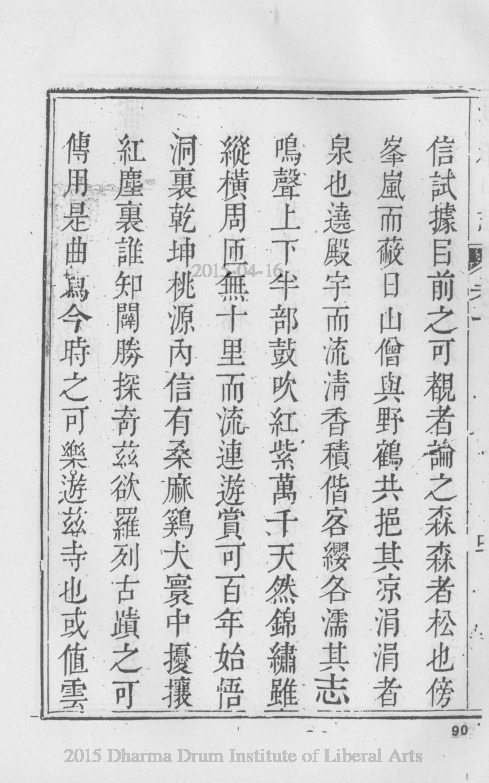 信試據目前之可覩者論之森森者松也傍
峯嵐而蔽日山僧與野鶴共挹其凉涓涓者
泉也遶殿宇而流淸香積偕客纓各濡其志
鳴聲上下半部鼓吹紅紫萬千天然錦繡雖
縱橫周匝無十里而流連遊賞可百年始悟
洞裏乾坤桃源內信有桑麻鷄犬寰中擾攘
紅塵裏誰知闢勝探奇茲欲羅列古蹟之可
傳用是曲寫今時之可樂遊茲寺也或値雲
90
2015-04-16
2015 Dharma Drum Institute of Liberal Arts